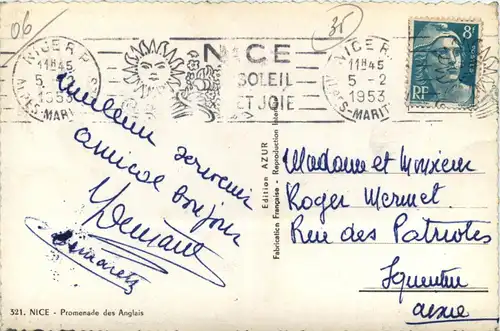 06/
35
NICE R.P.
11H45
5-2
1953
ALPES-MARIT
NICE
SOLEIL
ET JOIE
NICE R.P.
11H45
5-2
1953
ALPES-MARIT
8F
RF
souvenir
amical bonjour
Madame et Monsieur
Roger Mermet
Rue des Patriotes
Aisne
Edition AZUR
Fabrication Française - Reproduction Inter
321. NICE - Promenade des Anglais